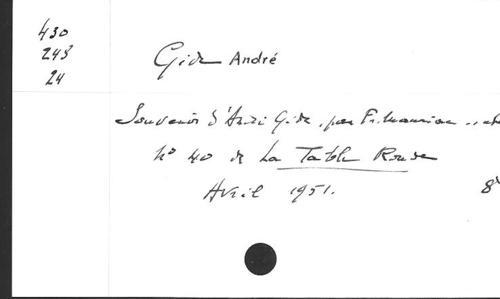 430
243
24
Gide André
Souvenir d'André Gide, par F. Mauriac
No 40 de La Table Ronde
Avril 1951.
8°